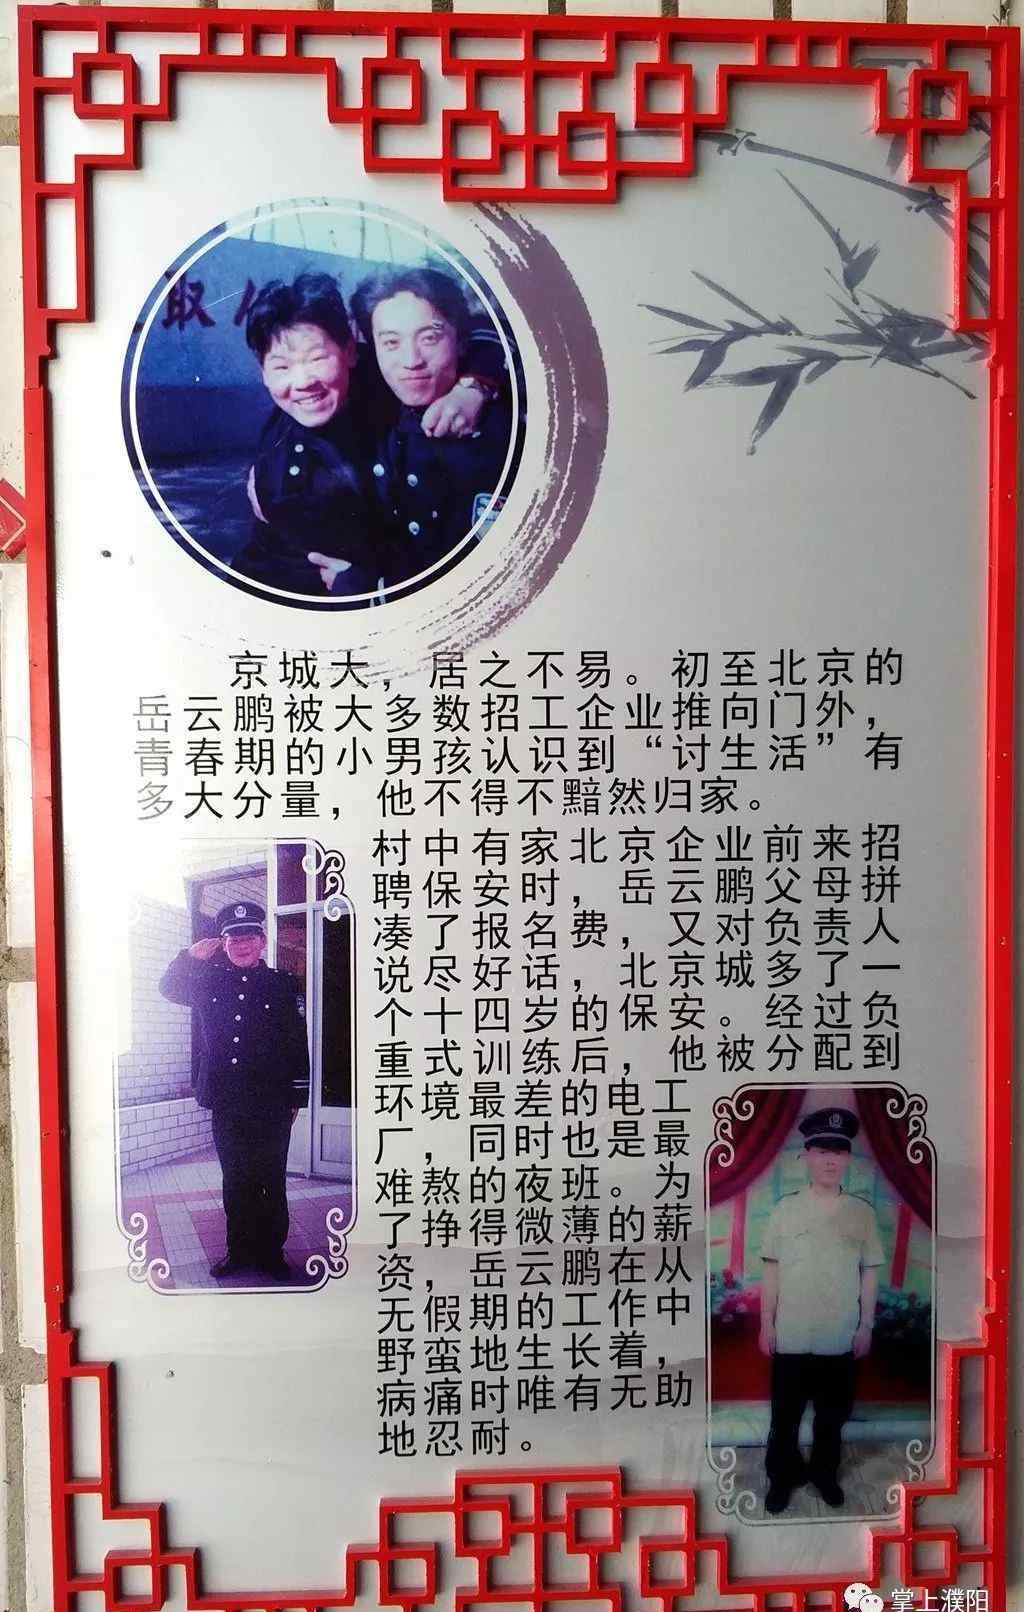 取
京城大，居之不易。初至北京的
岳云鹏被大多数招工企业推向门外，
青春期的小男孩认识到“讨生活”有
多大分量，他不得不黯然归家。
村中有家北京企业前来招
聘保安时，岳云鹏父母拼
凑了报名费，又对负责人
说尽好话，北京城多了一
个十四岁的保安。经过负
重式训练后，他被分配到
环境最差的电工
厂，同时也是最
难熬的夜班。为
了挣得微薄的薪
资，岳云鹏在从
无假期的工作中
野蛮地生长着，
病痛时唯有无助
地忍耐。
掌上濮阳